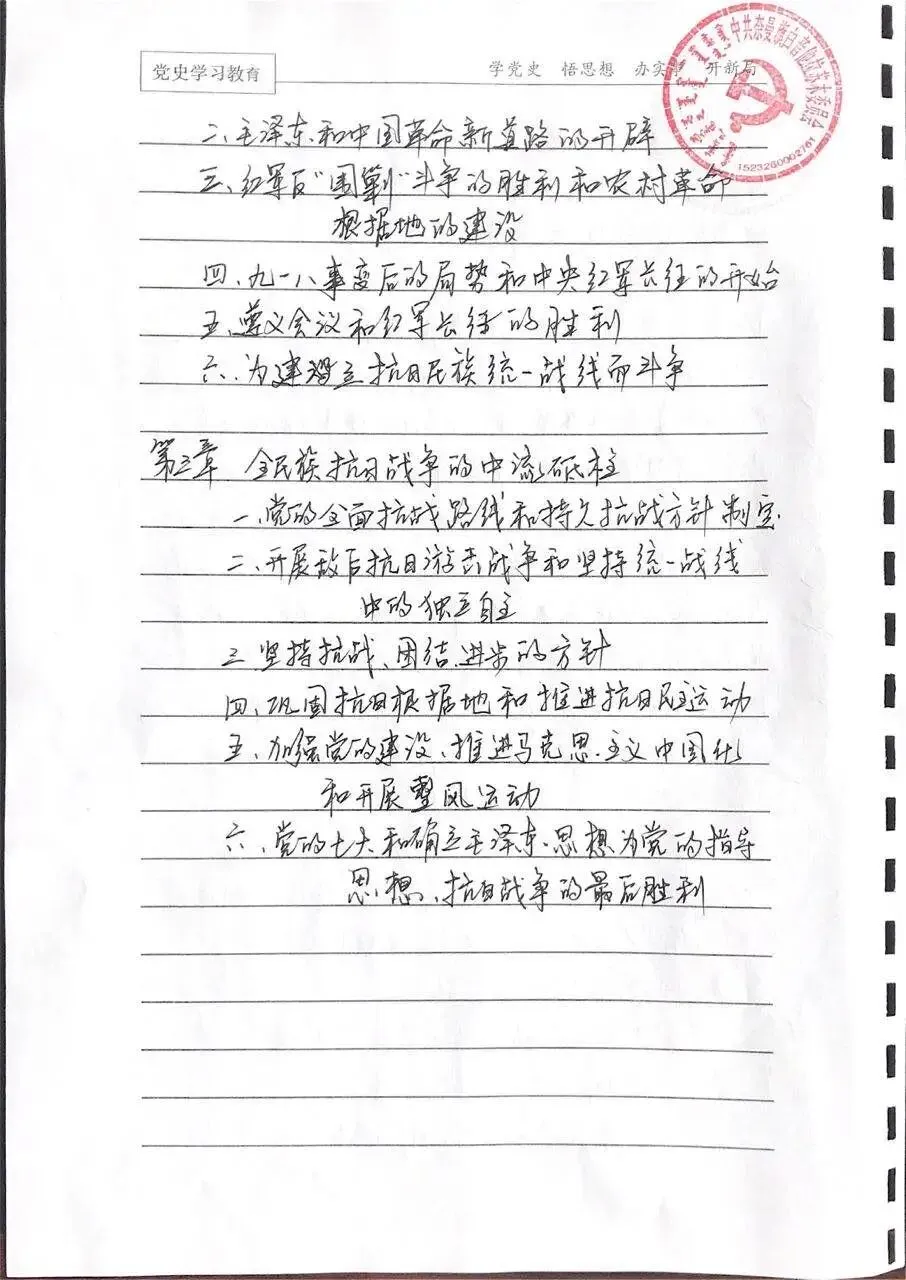 党史学习教育
学党史 悟思想 办实事 开新局
中共奈曼旗白音他拉苏木委员会
1523260002761
二、毛泽东和中国革命新道路的开辟
三、红军反“围剿”斗争的胜利和农村革命
根据地的建设
四、九一八事变后的局势和中央红军长征的开始
五、遵义会议和红军长征的胜利
六、为建立抗日民族统一战线而斗争
第三章 全民族抗日战争的中流砥柱
一、党的全面抗战路线和持久抗战方针制定
二、开展敌后抗日游击战争和坚持统一战线
中的独立自主
三、坚持抗战、团结、进步的方针
四、巩固抗日根据地和推进抗日民主运动
五、加强党的建设、推进马克思主义中国化
和开展整风运动
六、党的七大和确立毛泽东思想为党的指导
思想、抗日战争的最后胜利